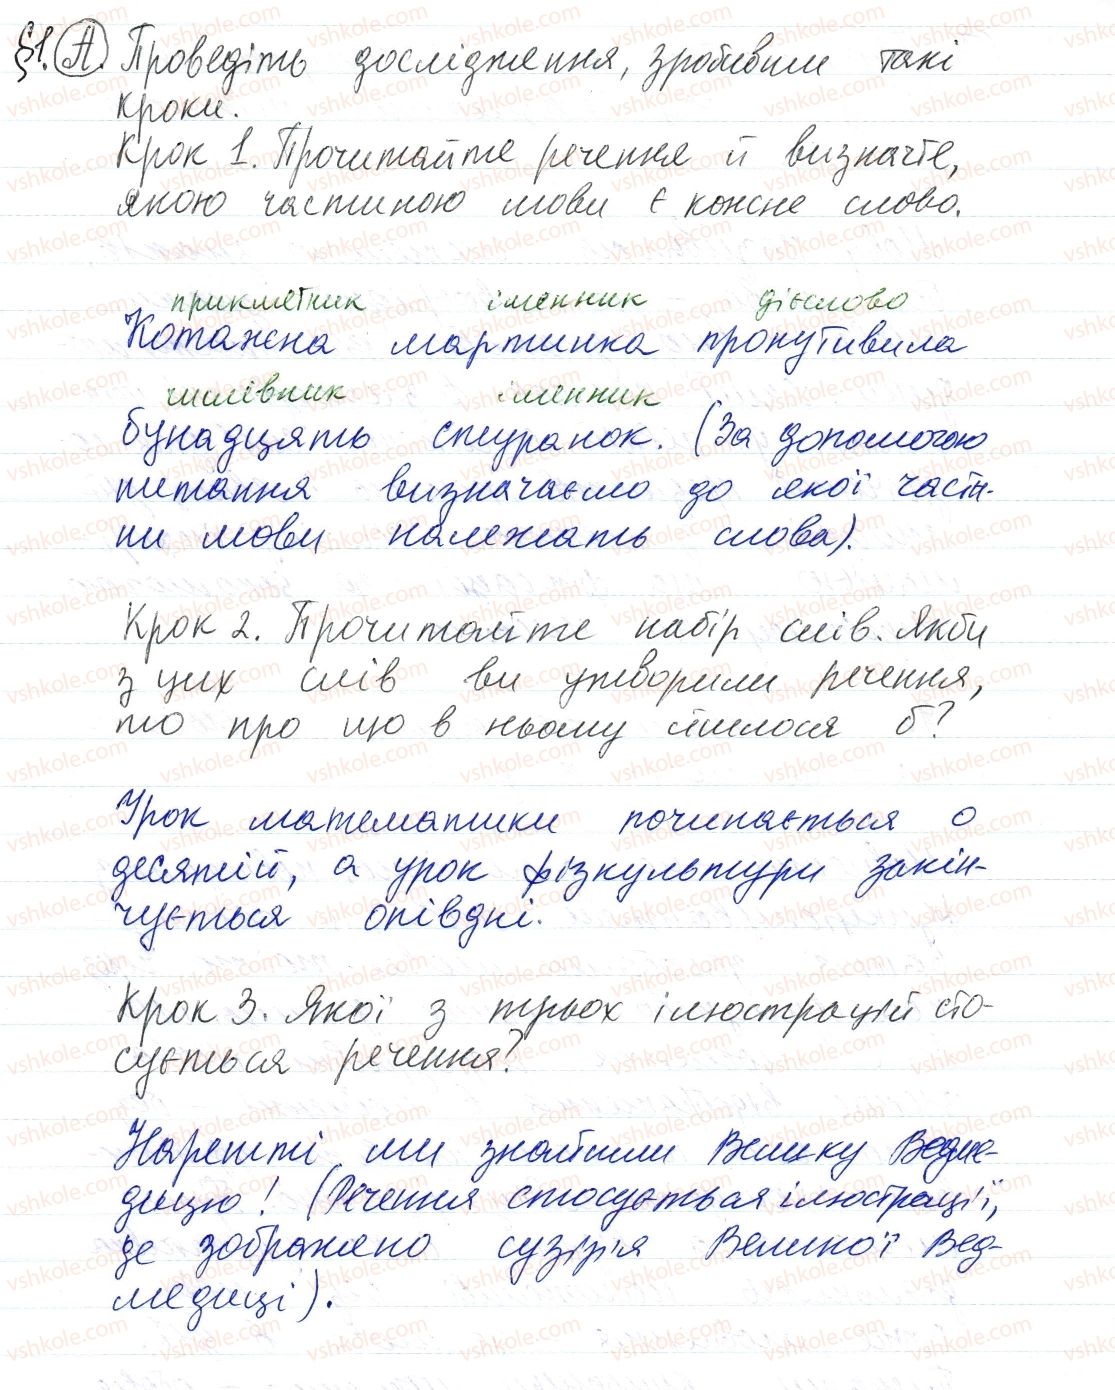 §1. А Проведіть дослідження, зробивши такі
кроки.
Крок 1. Прочитайте речення й визначте,
якою частиною мови є кожне слово.
прикметник іменник дієслово
Котажєна мартинка пронутивила
числівник іменник
бунадцять стуранок. (За допомогою
питання визначаємо до якої части-
ни мови належать слова).
Крок 2. Прочитайте набір слів. Якби
з цих слів ви утворили речення,
то про що в ньому йшлося б?
Урок математики починається о
десятій, а урок фізкультури закін-
чується опівдні.
Крок 3. Якої з трьох ілюстрацій сто-
сується речення?
Нарешті ми знайшли Велику Ведме-
дицю! (Речення стосується ілюстрації,
де зображено сузір'я Великої Вед-
медиці).